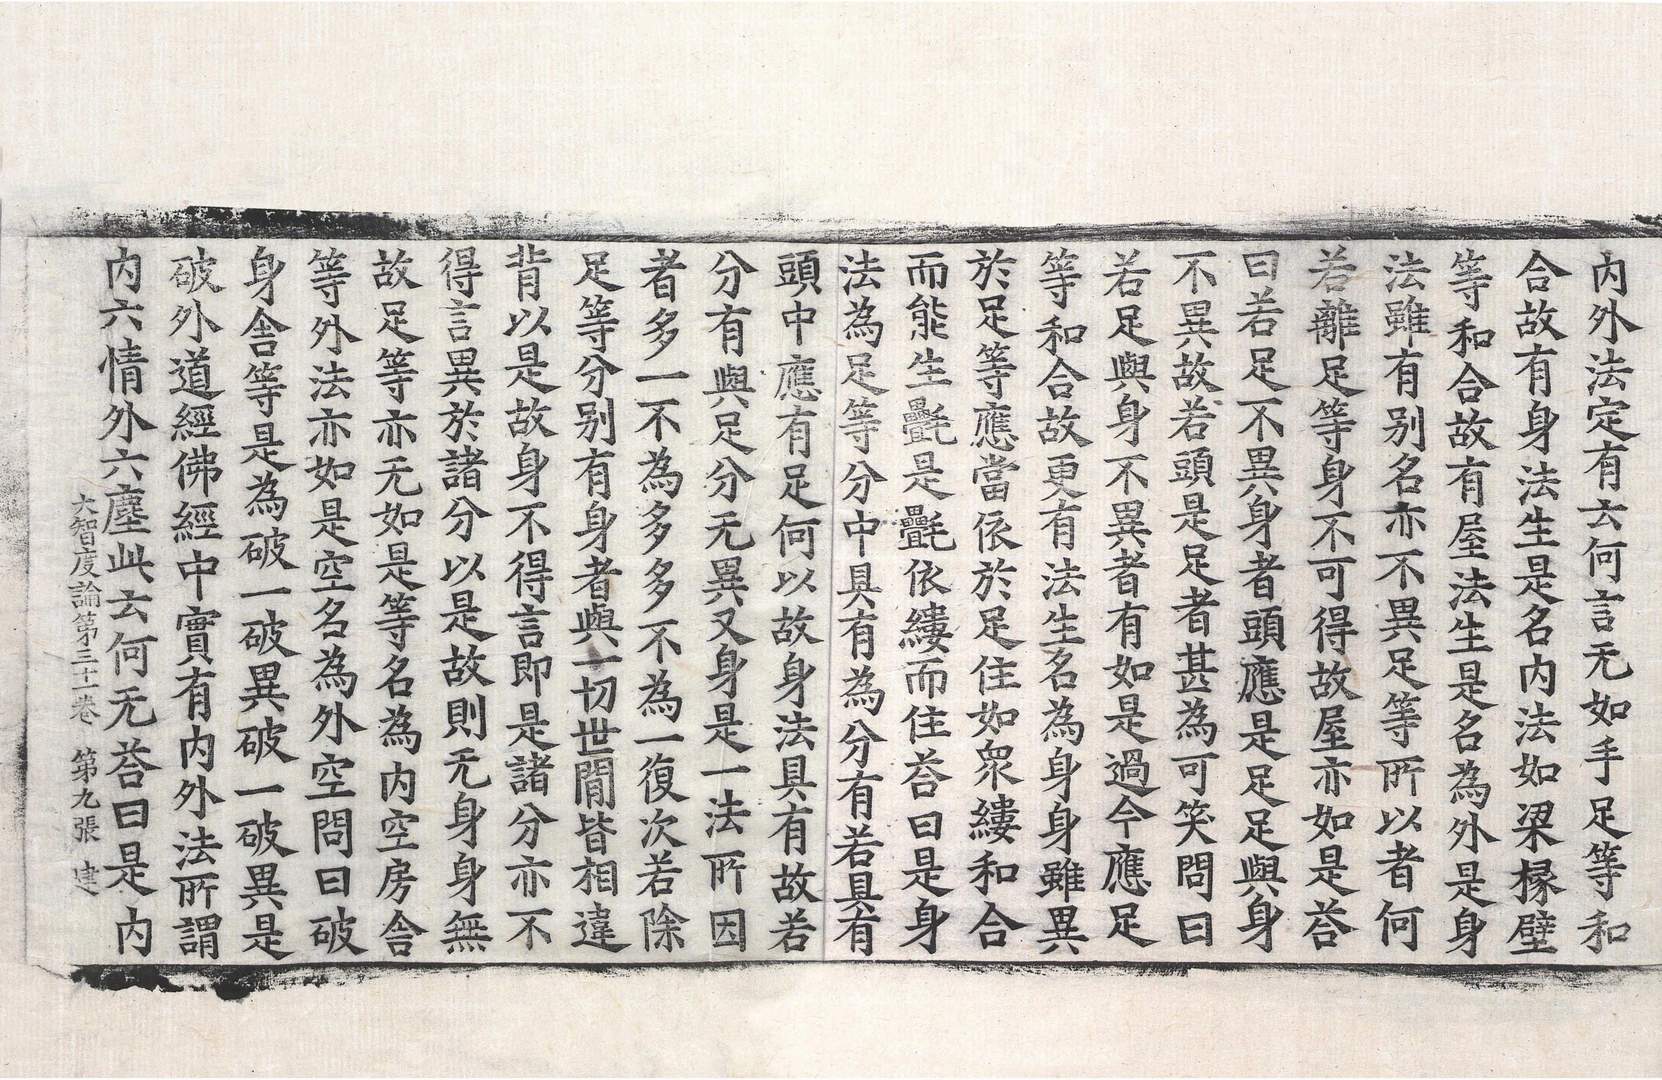 內外法定有云何言无如手足等和
合故有身法生是名內法如梁椽壁
等和合故有屋法生是名為外是身
法雖有別名亦不異足等所以者何
若離足等身不可得故屋亦如是荅
曰若足不異身者頭應是足足與身
不異故若頭是足者甚為可笑問曰
若足與身不異者有如是過今應足
等和合故更有法生名為身身雖異
於足等應當依於足住如衆縷和合
而能生㲲是㲲依縷而住荅曰是身
法為足等分中具有為分有若具有
頭中應有足何以故身法具有故若
分有與足分无異又身是一法所因
者多一不為多多不為一復次若除
足等分別有身者與一切世間皆相違
背以是故身不得言即是諸分亦不
得言異於諸分以是故則无身身無
故足等亦无如是等名為內空房舍
等外法亦如是空名為外空問曰破
身舍等是為破一破異破一破異是
破外道經佛經中實有內外法所謂
內六情外六塵此云何无荅曰是內
大智度論第三十一卷 第九張 建